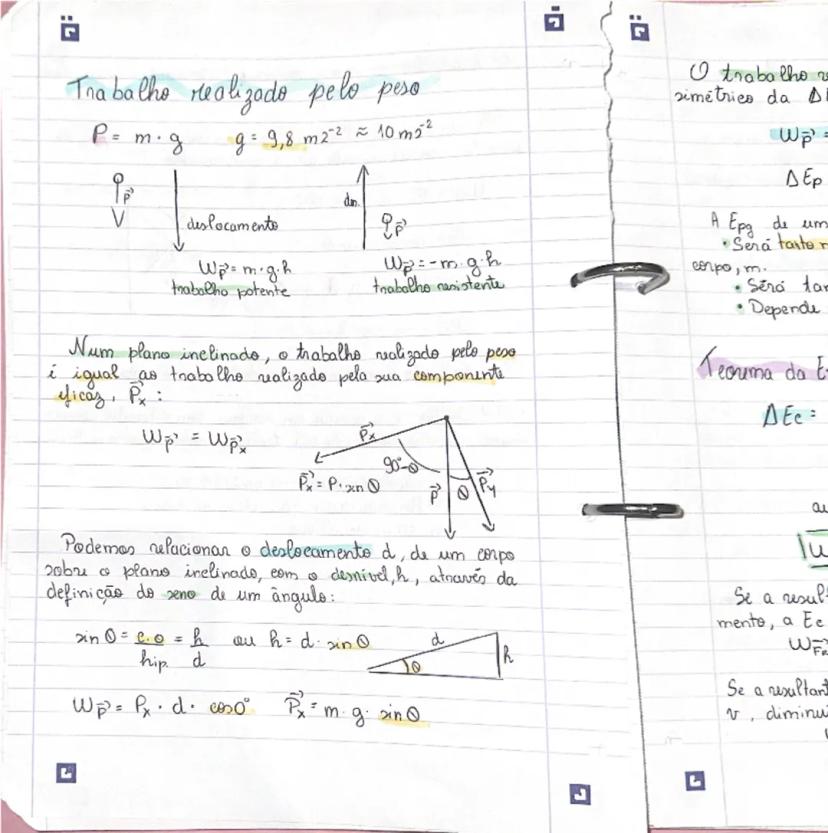 Trabalho realizado pelo peso
P = m · g g = 9,8 ms⁻² ≈ 10 ms⁻²
P⃗
deslocamento
dm.
P⃗
W P⃗ = m·g·h
trabalho potente
W P⃗ = -m·g·h
trabalho resistente
Num plano inclinado, o trabalho realizado pelo peso
é igual ao trabalho realizado pela sua componente
eficaz, P⃗x :
W P⃗ = W P⃗x
P⃗x
90°-θ
P⃗x = P·sinθ
P⃗
θ
P⃗y
Podemos relacionar o deslocamento d, de um corpo
sobre o plano inclinado, com o desnível, h, através da
definição do seno de um ângulo:
sinθ = c.o/hip = h/d ou h = d·sinθ
d
h
θ
W P⃗ = Px · d · cos0° P⃗x = m·g·sinθ
O trabalho
simétrico da Δ
W P⃗ =
ΔEp
A Epg de um
• Será tanto
corpo, m.
• Será
• Depende
Teorema da E
ΔEc =
Se a
mento, a Ec
Se a
v, diminui